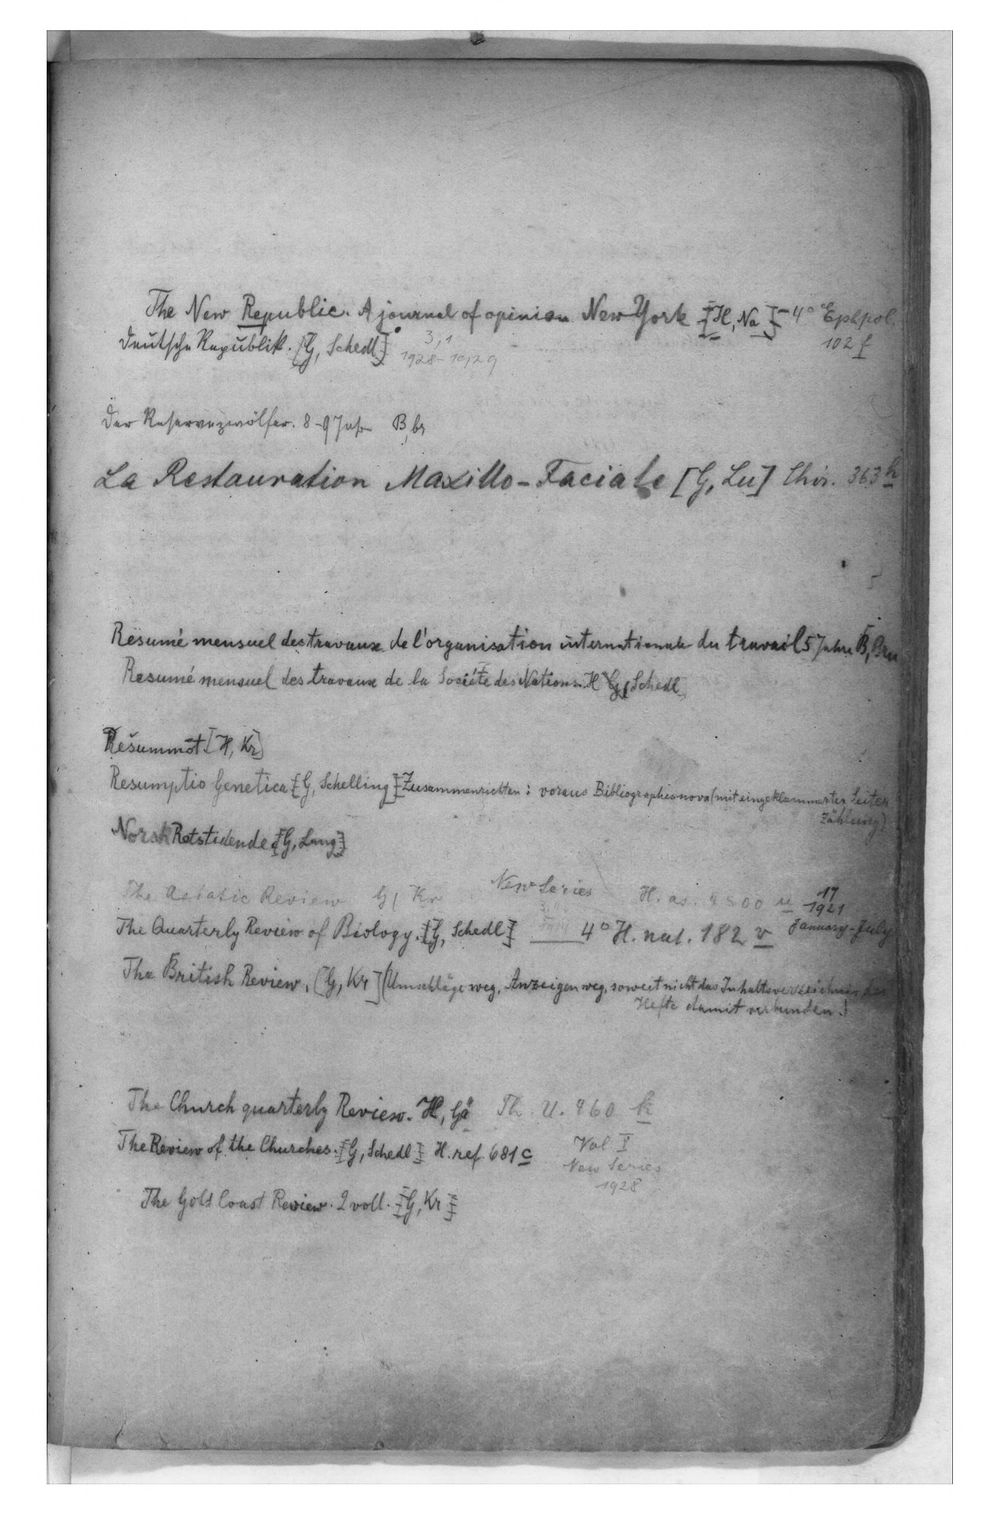 The New Republic. A journal of opinion New York [H, Na] 4° Eph.pol. 102 f
Deutsche Republik. [G, Schedl] 3,1 1928-10,29
Der Reservezwölfer. 8-9 Jahr B, br
La Restauration Maxillo-Faciale [G, Lu] Chir. 363 h
Resumé mensuel des travaux de l'organisation internationale du travail 5 Jahre B,
Resumé mensuel des travaux de la Société des Nations. H G, Schedl
[H, Kr]
Resumptio Genetica [G, Schelling] Zusammenrichten: voraus Bibliographia nova (mit eingeklammerter Seiten
zählung)
Norsk Retstidende [G, Lang]
The Asiatic Review G, Kr New Series H. as. u 17 1921 January-July
The Quarterly Review of Biology. [G, Schedl] 4° H. nat. 182 v
The British Review. [G, Kr] (Umschläge weg, Anzeigen weg, soweit nicht das Inhaltsverzeichnis der
Hefte damit verbunden.)
The Church quarterly Review. H, Gä Th. U. 960 k
The Review of the Churches. [G, Schedl] H. ref. 681 c Vol I
New Series
1928
The Gold Coast Review. 2 voll. [G, Kr]